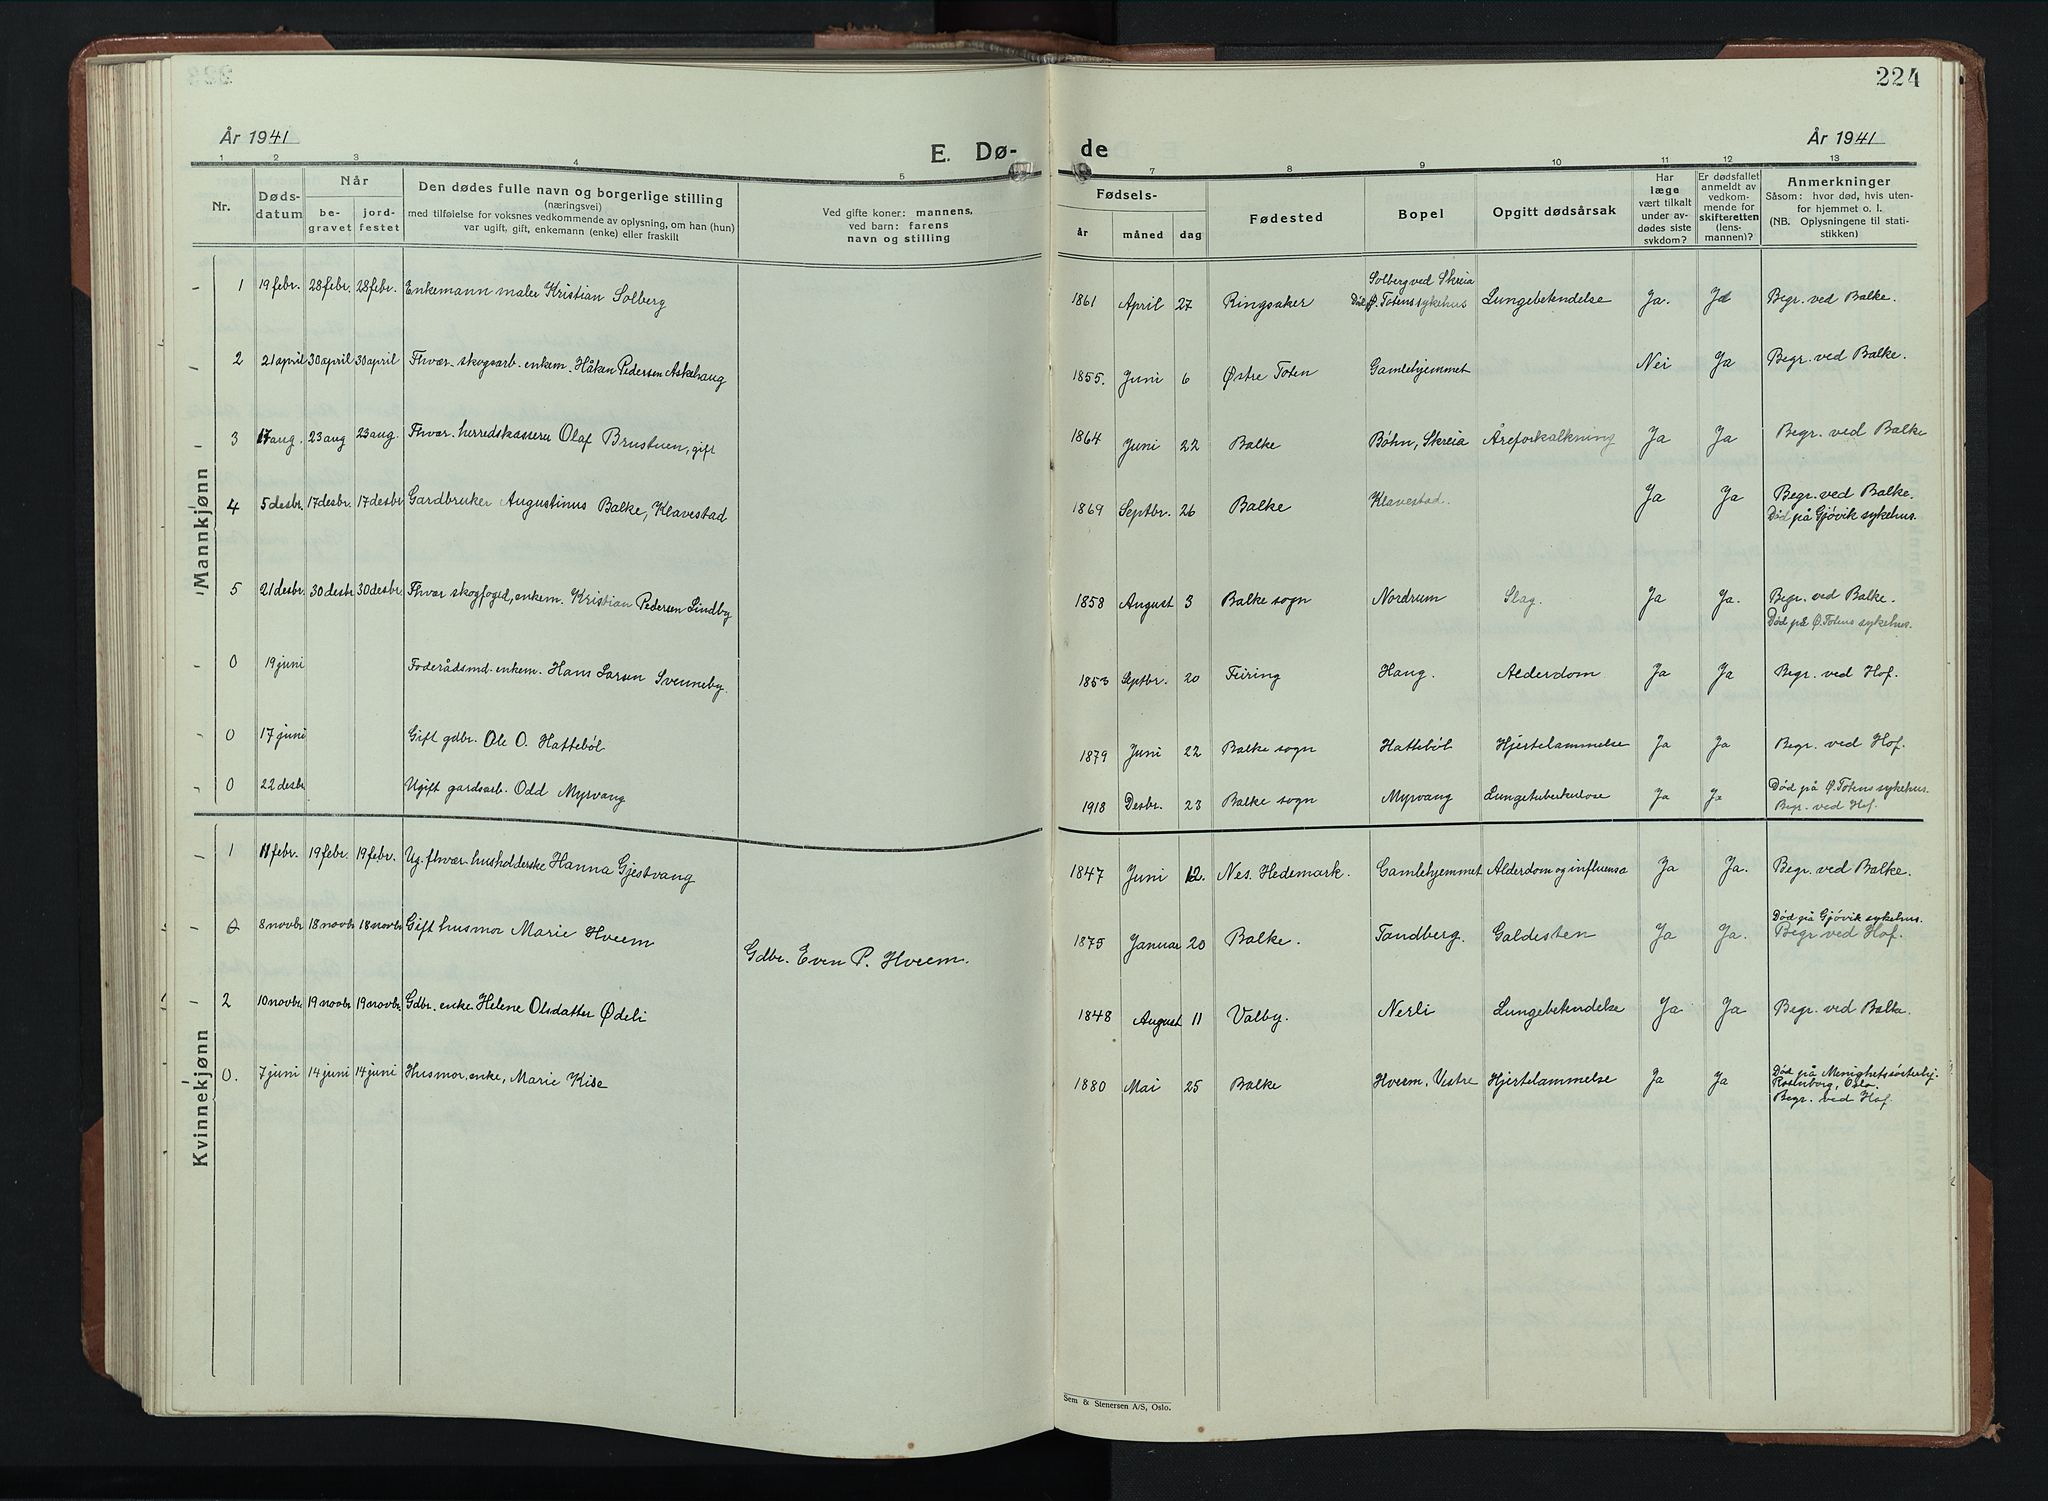 224
År 1941
År 1941
E. Dø-
de
1 2 3 4 5
7 8 9 10 11 12 13
Nr.
Døds-
datum
Når
be-
gravet
jord-
festet
Den dødes fulle navn og borgerlige stilling
(næringsvei)
med tilføielse for voksnes vedkommende av oplysning, om han (hun)
var ugift, gift, enkemann (enke) eller fraskilt
Ved gifte koner: mannens,
ved barn: farens
navn og stilling
Fødsels-
år måned dag
Fødested
Bopel
Opgitt dødsårsak
Har
læge
vært tilkalt
under av-
dødes siste
sykdom?
Er dødsfallet
anmeldt av
vedkom-
mende for
skifteretten
(lens-
mannen)?
Anmerkninger
Såsom: hvor død, hvis uten-
for hjemmet o. l.
(NB. Oplysningene til stati-
stikken)
Mannkjønn
1 19 febr. 28 febr. 28 febr. Enkemann maler Kristian Solberg
1861 April 27 Ringsaker Solberg ved Skreia
Død Ø. Totens sykehus Lungebetendelse Ja. Ja Begr. ved Balke.
2 21 april 30 april 30 april Fhvær. skogsarb. enkem. Håken Pedersen Askehaug
1855. Juni 6 Østre Toten Gamlehjemmet Nei Ja Begr. ved Balke.
3 17 aug. 23 aug 23 aug. Fhvær. herredskasserer Olaf Brustuen, gift
1864 Juni 22 Balke Bøhn, Skreia Åreforkalkning Ja Ja Begr. ved Balke
4 5 desbr. 17 desbr. 17 desbr Gardbruker Augustinus Balke, Klavestad
1869 Septbr. 26 Balke Klavestad. Ja Ja Begr. ved Balke.
Død på Gjøvik sykehus.
5 21 desbr. 30 desbr 30 desbr. Fhvær skogfoged, enkem. Kristian Pedersen Lindby
1858 August 3 Balke sogn Nordrum Slag. Ja Ja. Begr. ved Balke.
Død på Ø. Totens sykehus.
0 19 juni Foderådsmd. enkem. Hans Larsen Svenneby.
1853 Septbr. 20 Feiring Haug. Alderdom Ja Ja Begr. ved Hof.
0 17 juni Gift gdbr. Ole O. Hattebøl
1879 Juni 22 Balke sogn Hattebøl Hjertelammelse Ja Ja Begr. ved Hof.
0 22 desbr Ugift gardsarb. Odd Myrvang
1918 Desbr. 23 Balke sogn Myrvang Lungetuberkulose Ja Ja Død på Ø. Totens sykehus.
Begr. ved Hof.
Kvinnekjønn
1 11 febr. 19 febr. 19 febr. Ug. fhvær. husholderske Hanna Gjestvang
1847 Juni 12. Nes. Hedemark. Gamlehjemmet Alderdom og influensa Ja Ja. Begr. ved Balke.
0 8 novbr 18 novbr 18 novbr Gift husmor Marie Hveem
Gdbr. Even P. Hveem.
1875 Januar 20 Balke. Tandberg. Galdesten Ja Ja. Død på Gjøvik sykehus.
Begr ved Hof.
2 10 novbr. 19 novbr 19 novbr. Gdbr. enke Helene Olsdatter Ødeli
1848 August 11 Valby. Nerli Lungebetendelse Ja Ja Begr. ved Balke.
0. 7 juni 14 juni 14 juni Husmor, enke, Marie Kise
1880 Mai 25 Balke Hveem, Vestre Hjertelammelse Ja Ja Død på Menighetssøsterhj.
Rosenborg, Oslo.
Begr. ved Hof.
Sem & Stenersen A/S, Oslo.